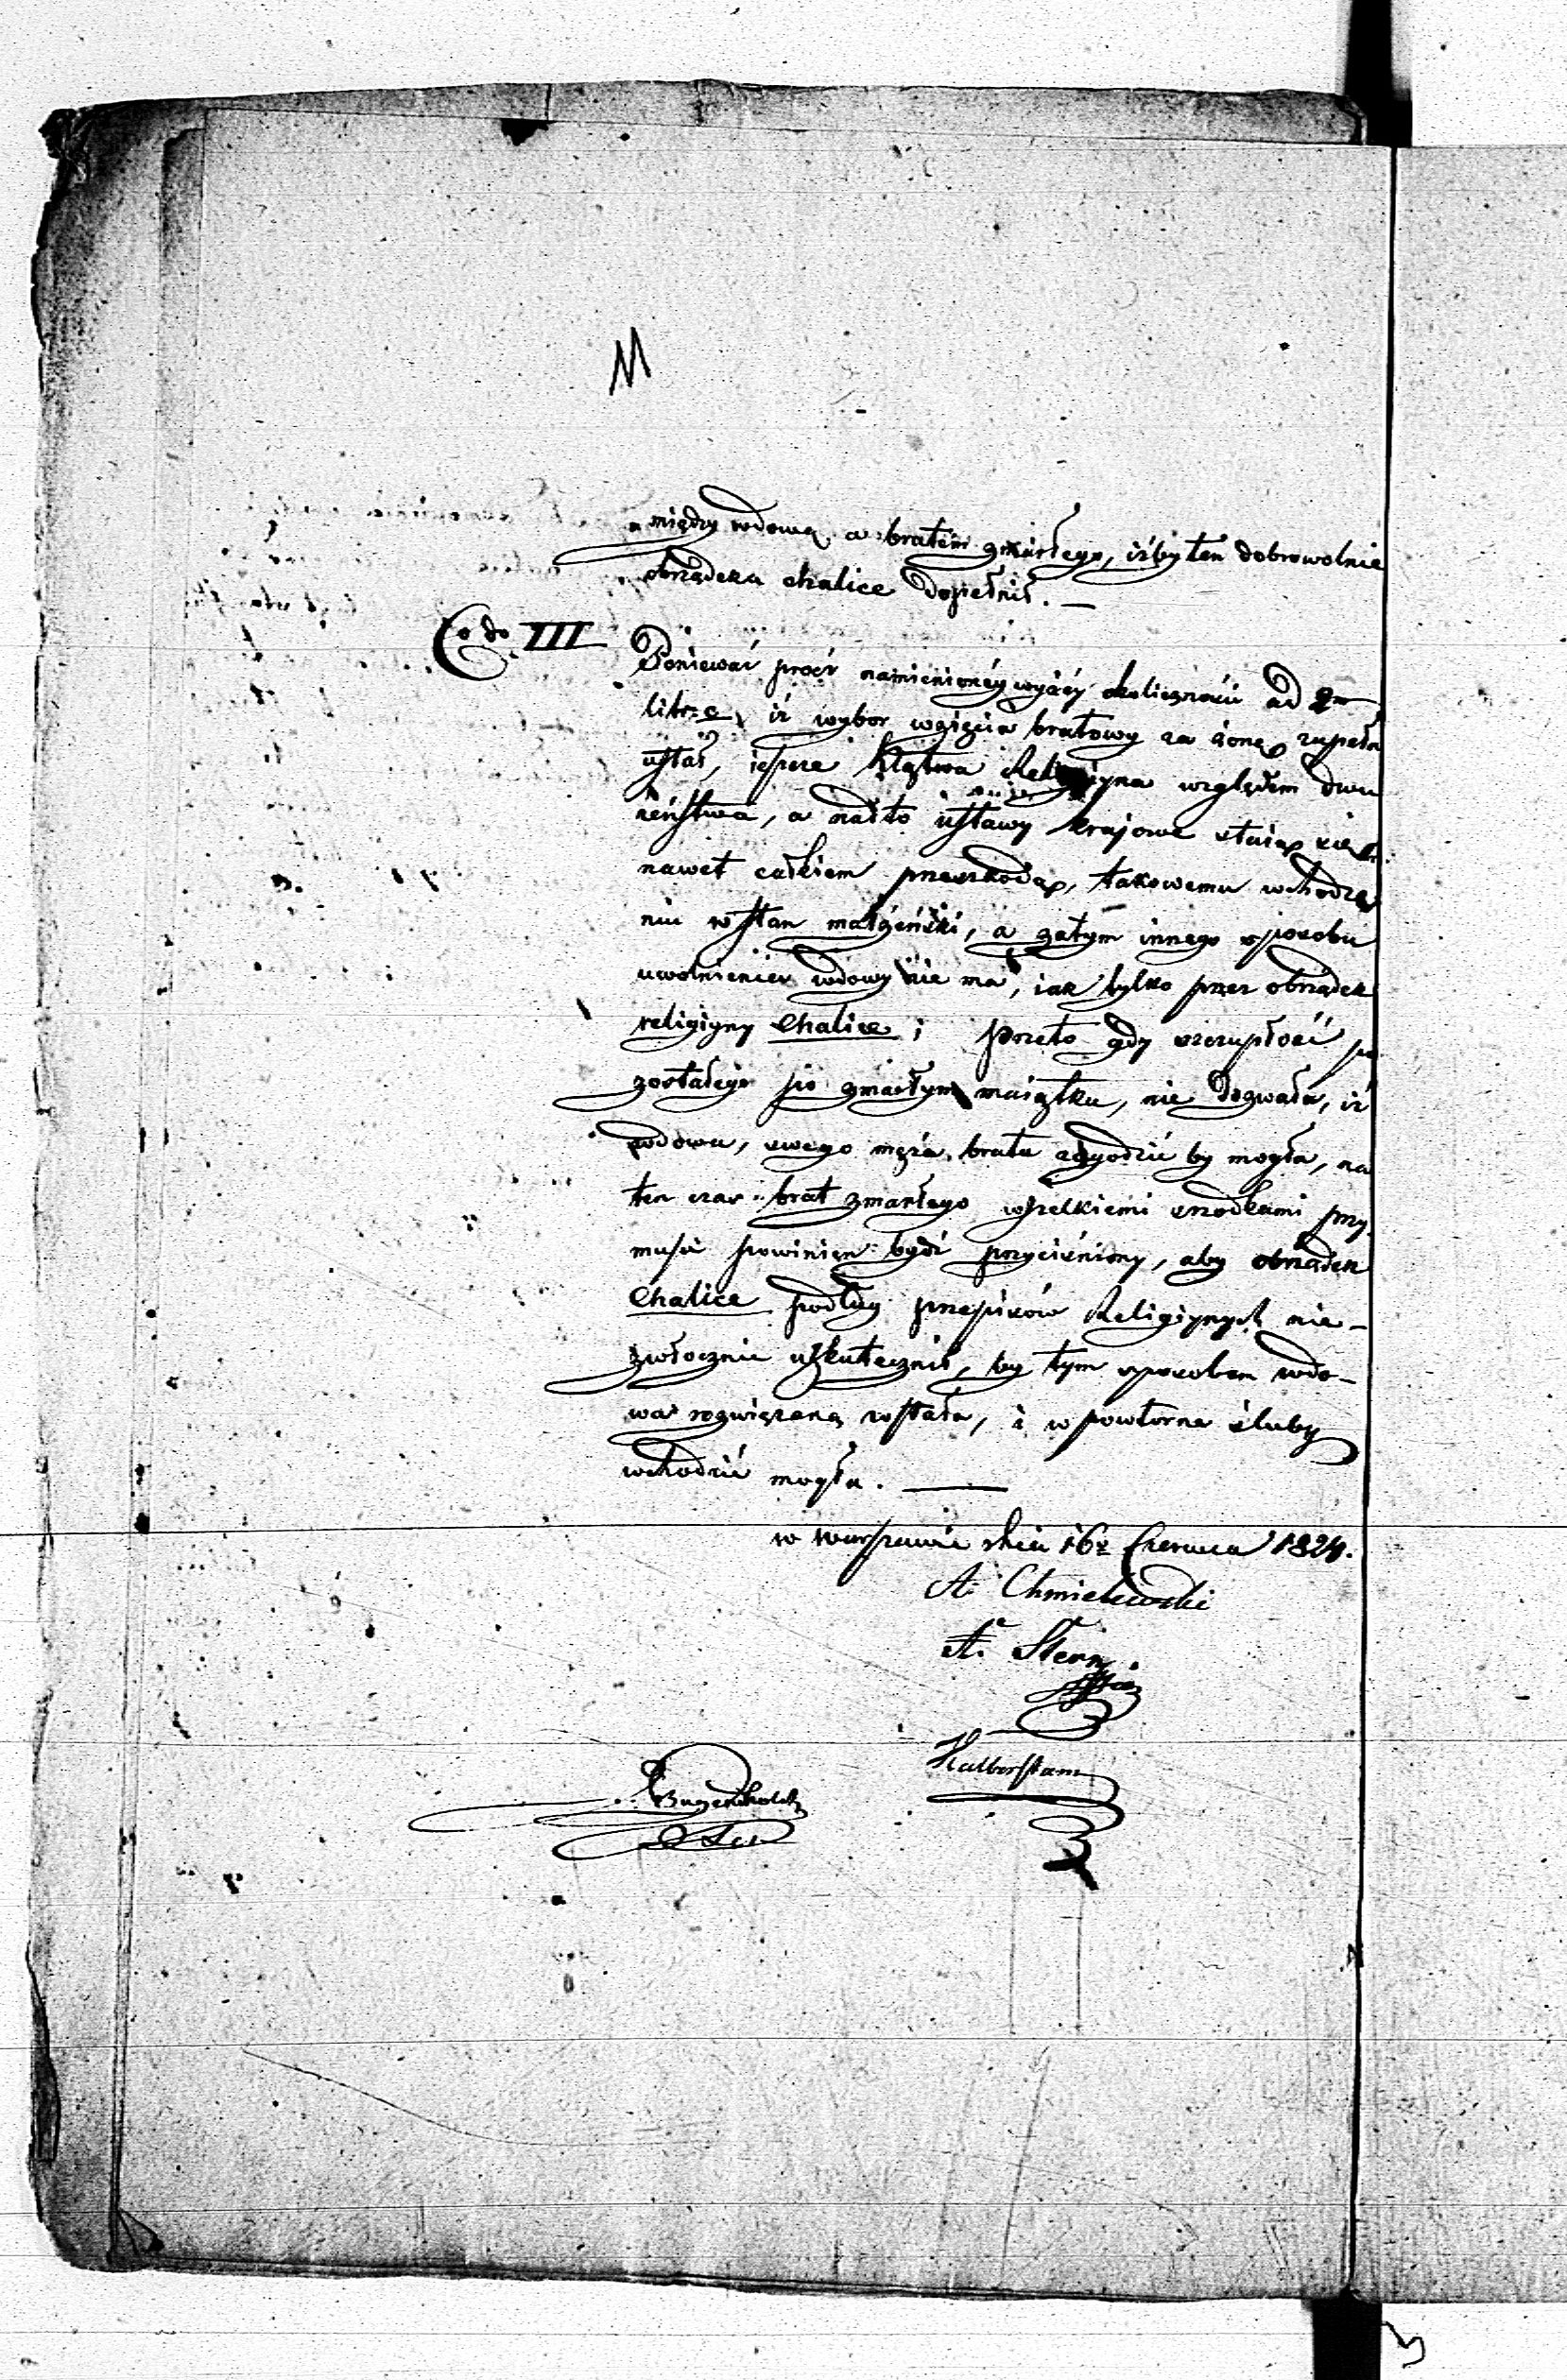 M
między wdową a bratem zmarłego, iżby ten dobrowolnie
obrządku chalice dopełnił. —
Co do III
Ponieważ prócz namienionéy wyżéy okoliczności ad 2um
litr: c, iż wybor wzięcia bratowy za żonę zupełn
ustał, ieszcze klątwa Religiyna względem dwu
żeństwa, a nadto ustawy krajowe
nawet całkiem przeszkodą, takowemu wchodze
niu w stan małżeński, a zatym innego sposobu
uwolnienia wdowy nie ma, iak tylko przez obrządek
religiyny Chalice; przeto gdy szczupłość po
zostałego po zmarłym maiątku, nie dozwala, iż
wdowa, swego męża brata zgodzić by mogła, na
ten czas brat zmarłego wszelkiemi srzodkami przy
musu powinien bydź przyciśniony, aby obrządek
Chalice podług przepisów Religiynych nie-
zwłocznie uskutecznił, by tym sposobem wdo-
wa rozwiązaną została, i w powtórne śluby
wchodzić mogła. —
w Warszawie dnia 16 Czerwca 1824.
A. Chmielewski
A. Stern
Halberstam
Buchholtz